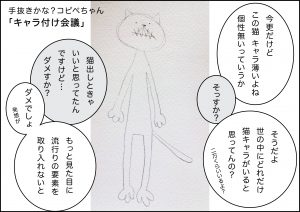 手抜きかな?コピペちゃん
「キャラ付け会議」
今更だけど
この猫 キャラ薄いよね
個性無いっていうか
そっすか?
そうだよ
世の中にどれだけ
猫キャラがいると
思ってんの?
二万くらいいるよ?
猫出しときゃ
いいと思ってたん
ですけど…
ダメすか?
ダメでしょ
発想が
もっと見た目に
流行りの要素を
取り入れないと